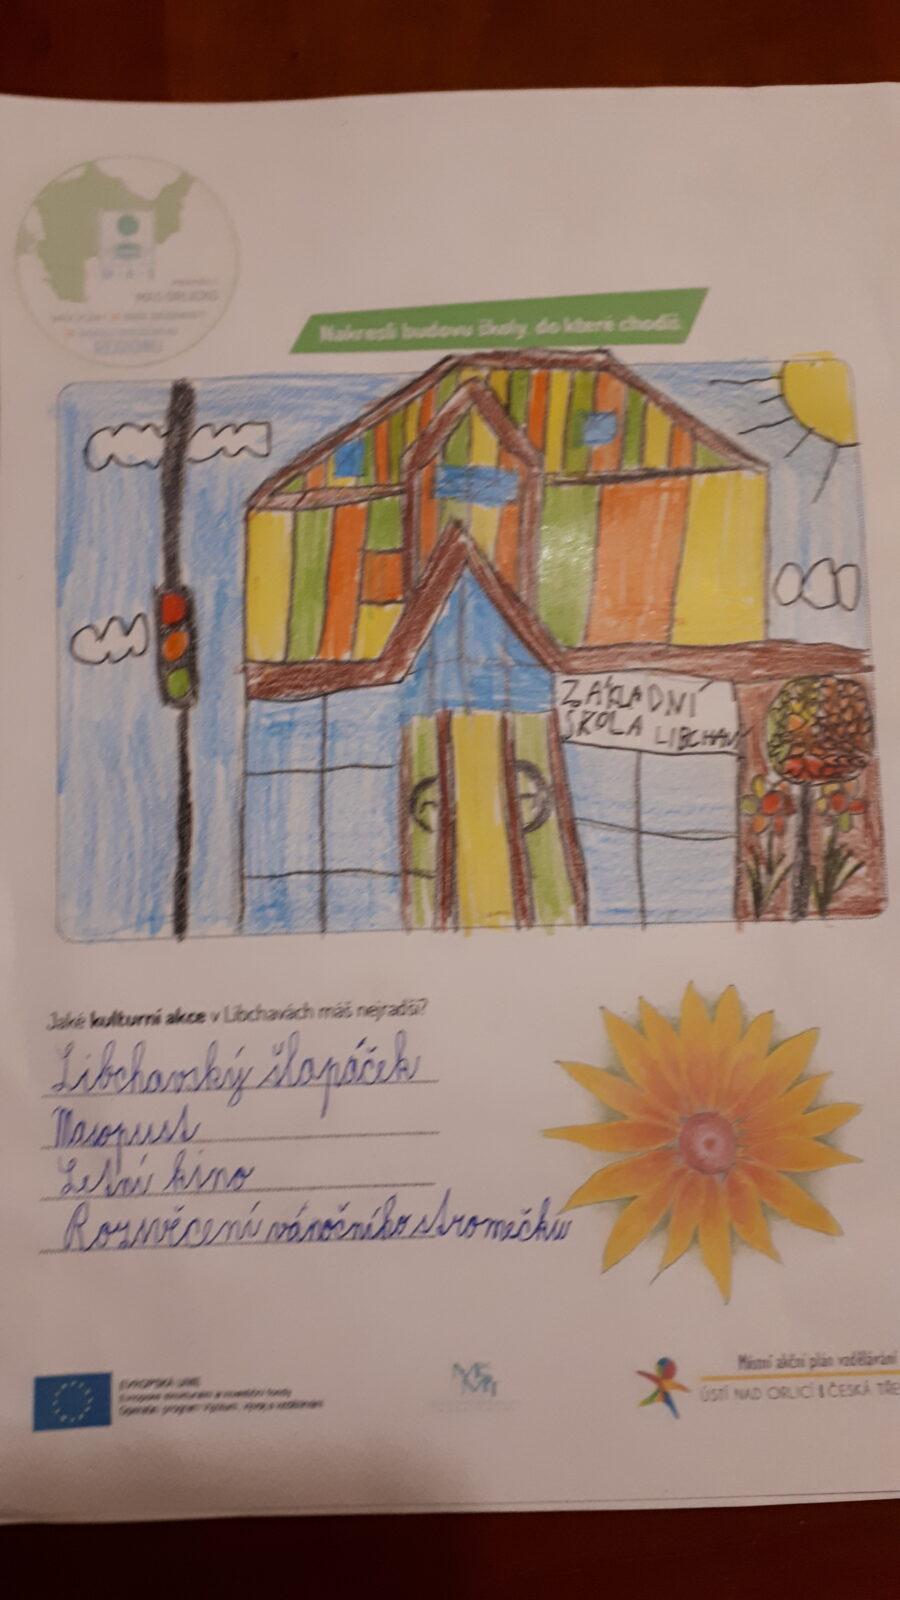 MAS ORLICKO
REGIONU
Nakresli budovu školy, do které chodíš.
ZÁKLADNÍ
ŠKOLA LIBCHAV
Jaké kulturní akce v Libchavách máš nejradši?
Libchavský šlapáček
Masopust
Letní kino
Rozsvěcení vánočního stromečku
EVROPSKÁ UNIE
Evropské strukturální a investiční fondy
Operační program Výzkum, vývoj a vzdělávání
Místní akční plán vzdělávání
ÚSTÍ NAD ORLICÍ I ČESKÁ TŘE